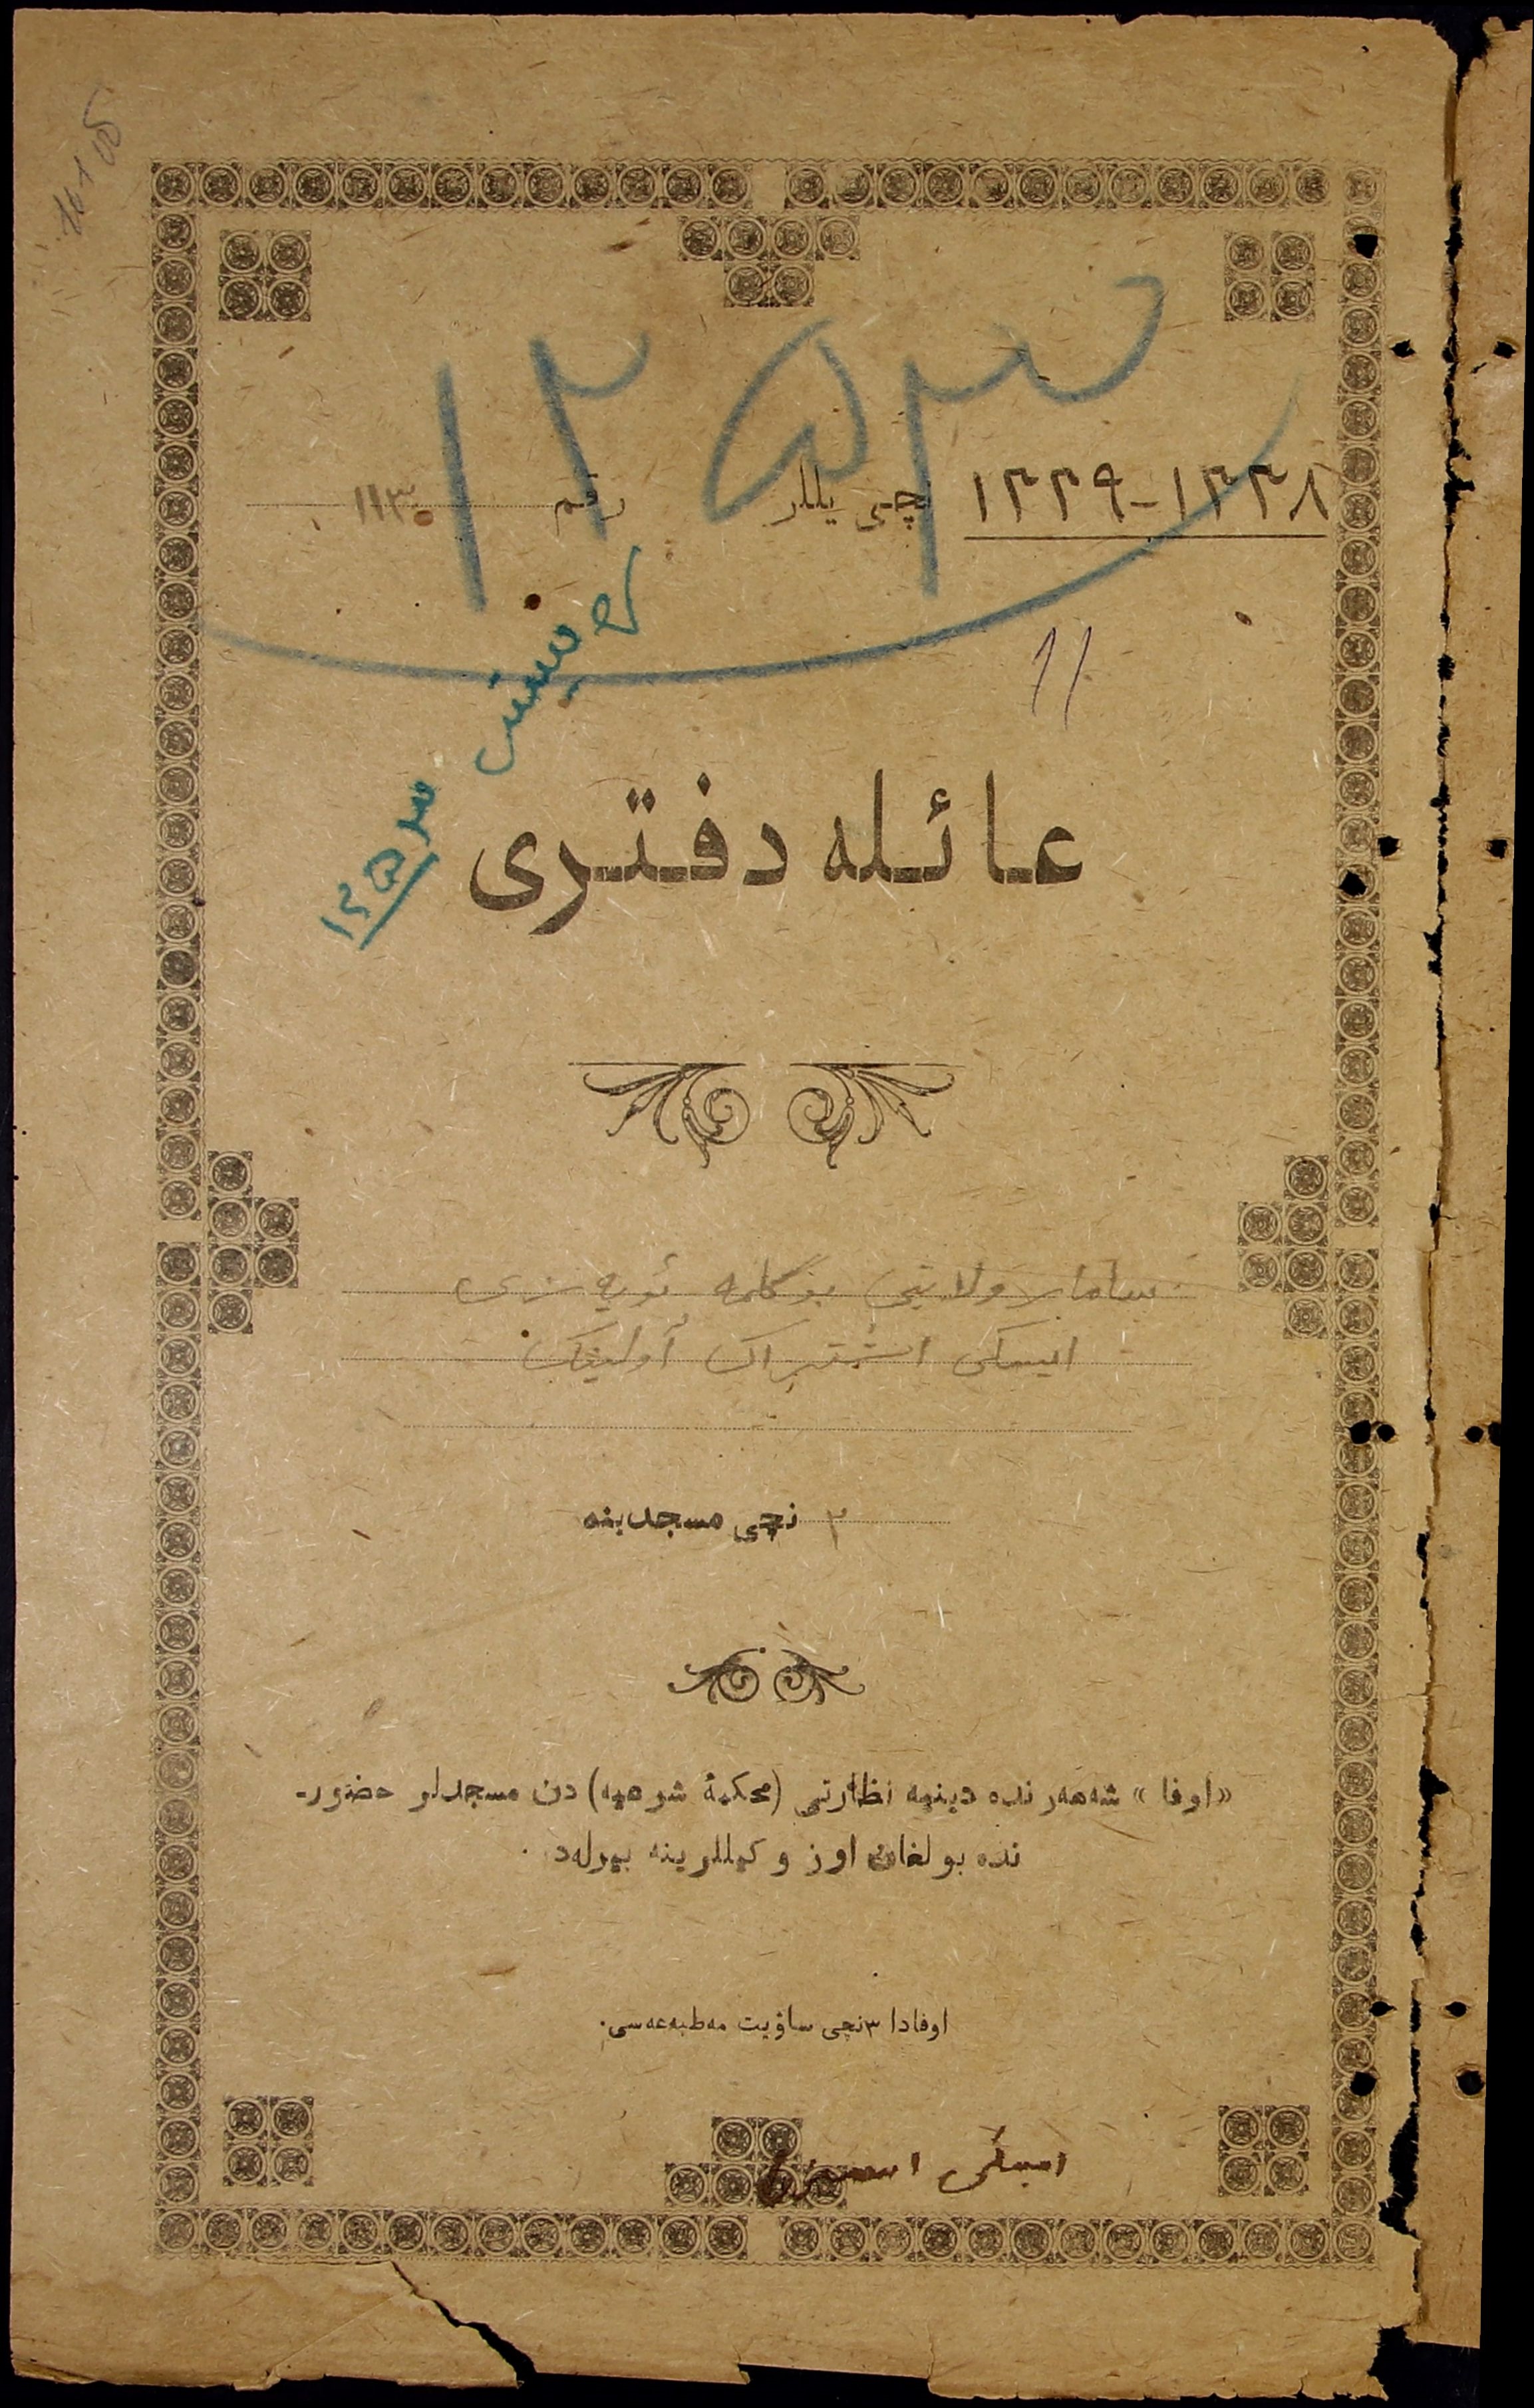 ١٢٥٣
١٣٣٨-١٣٣٩ نچی یللر رقم ١١٣٠
11
١٢٥٣
عائله دفتری
سامار ولایتی بوگلمه ئویه زی
ایسکی اشتیراک آولینک
٢ نچی مسجدینه
«اوفا» شەهەرنده دینیه نظارتی (محکمۀ شرعیه) دن مسجدلر حضور-
نده بولغان اوز وکیللرینه بیرلەد
اوفادا ٣نچی ساۋیت مەطبەعەسی.
ایسکی